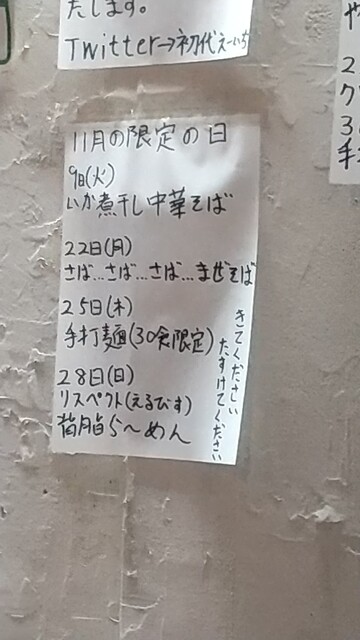 たします。
Twitter→初代えーいち
11月の限定の日
9日(火)
いか煮干し中華そば
22日(月)
さば…さば…さば…まぜそば
25日(木)
手打麺(30食限定)
28日(日)
リスペクト(えるびす)
背脂らーめん
きてください
たすけてください
や
2
ク
30
手打